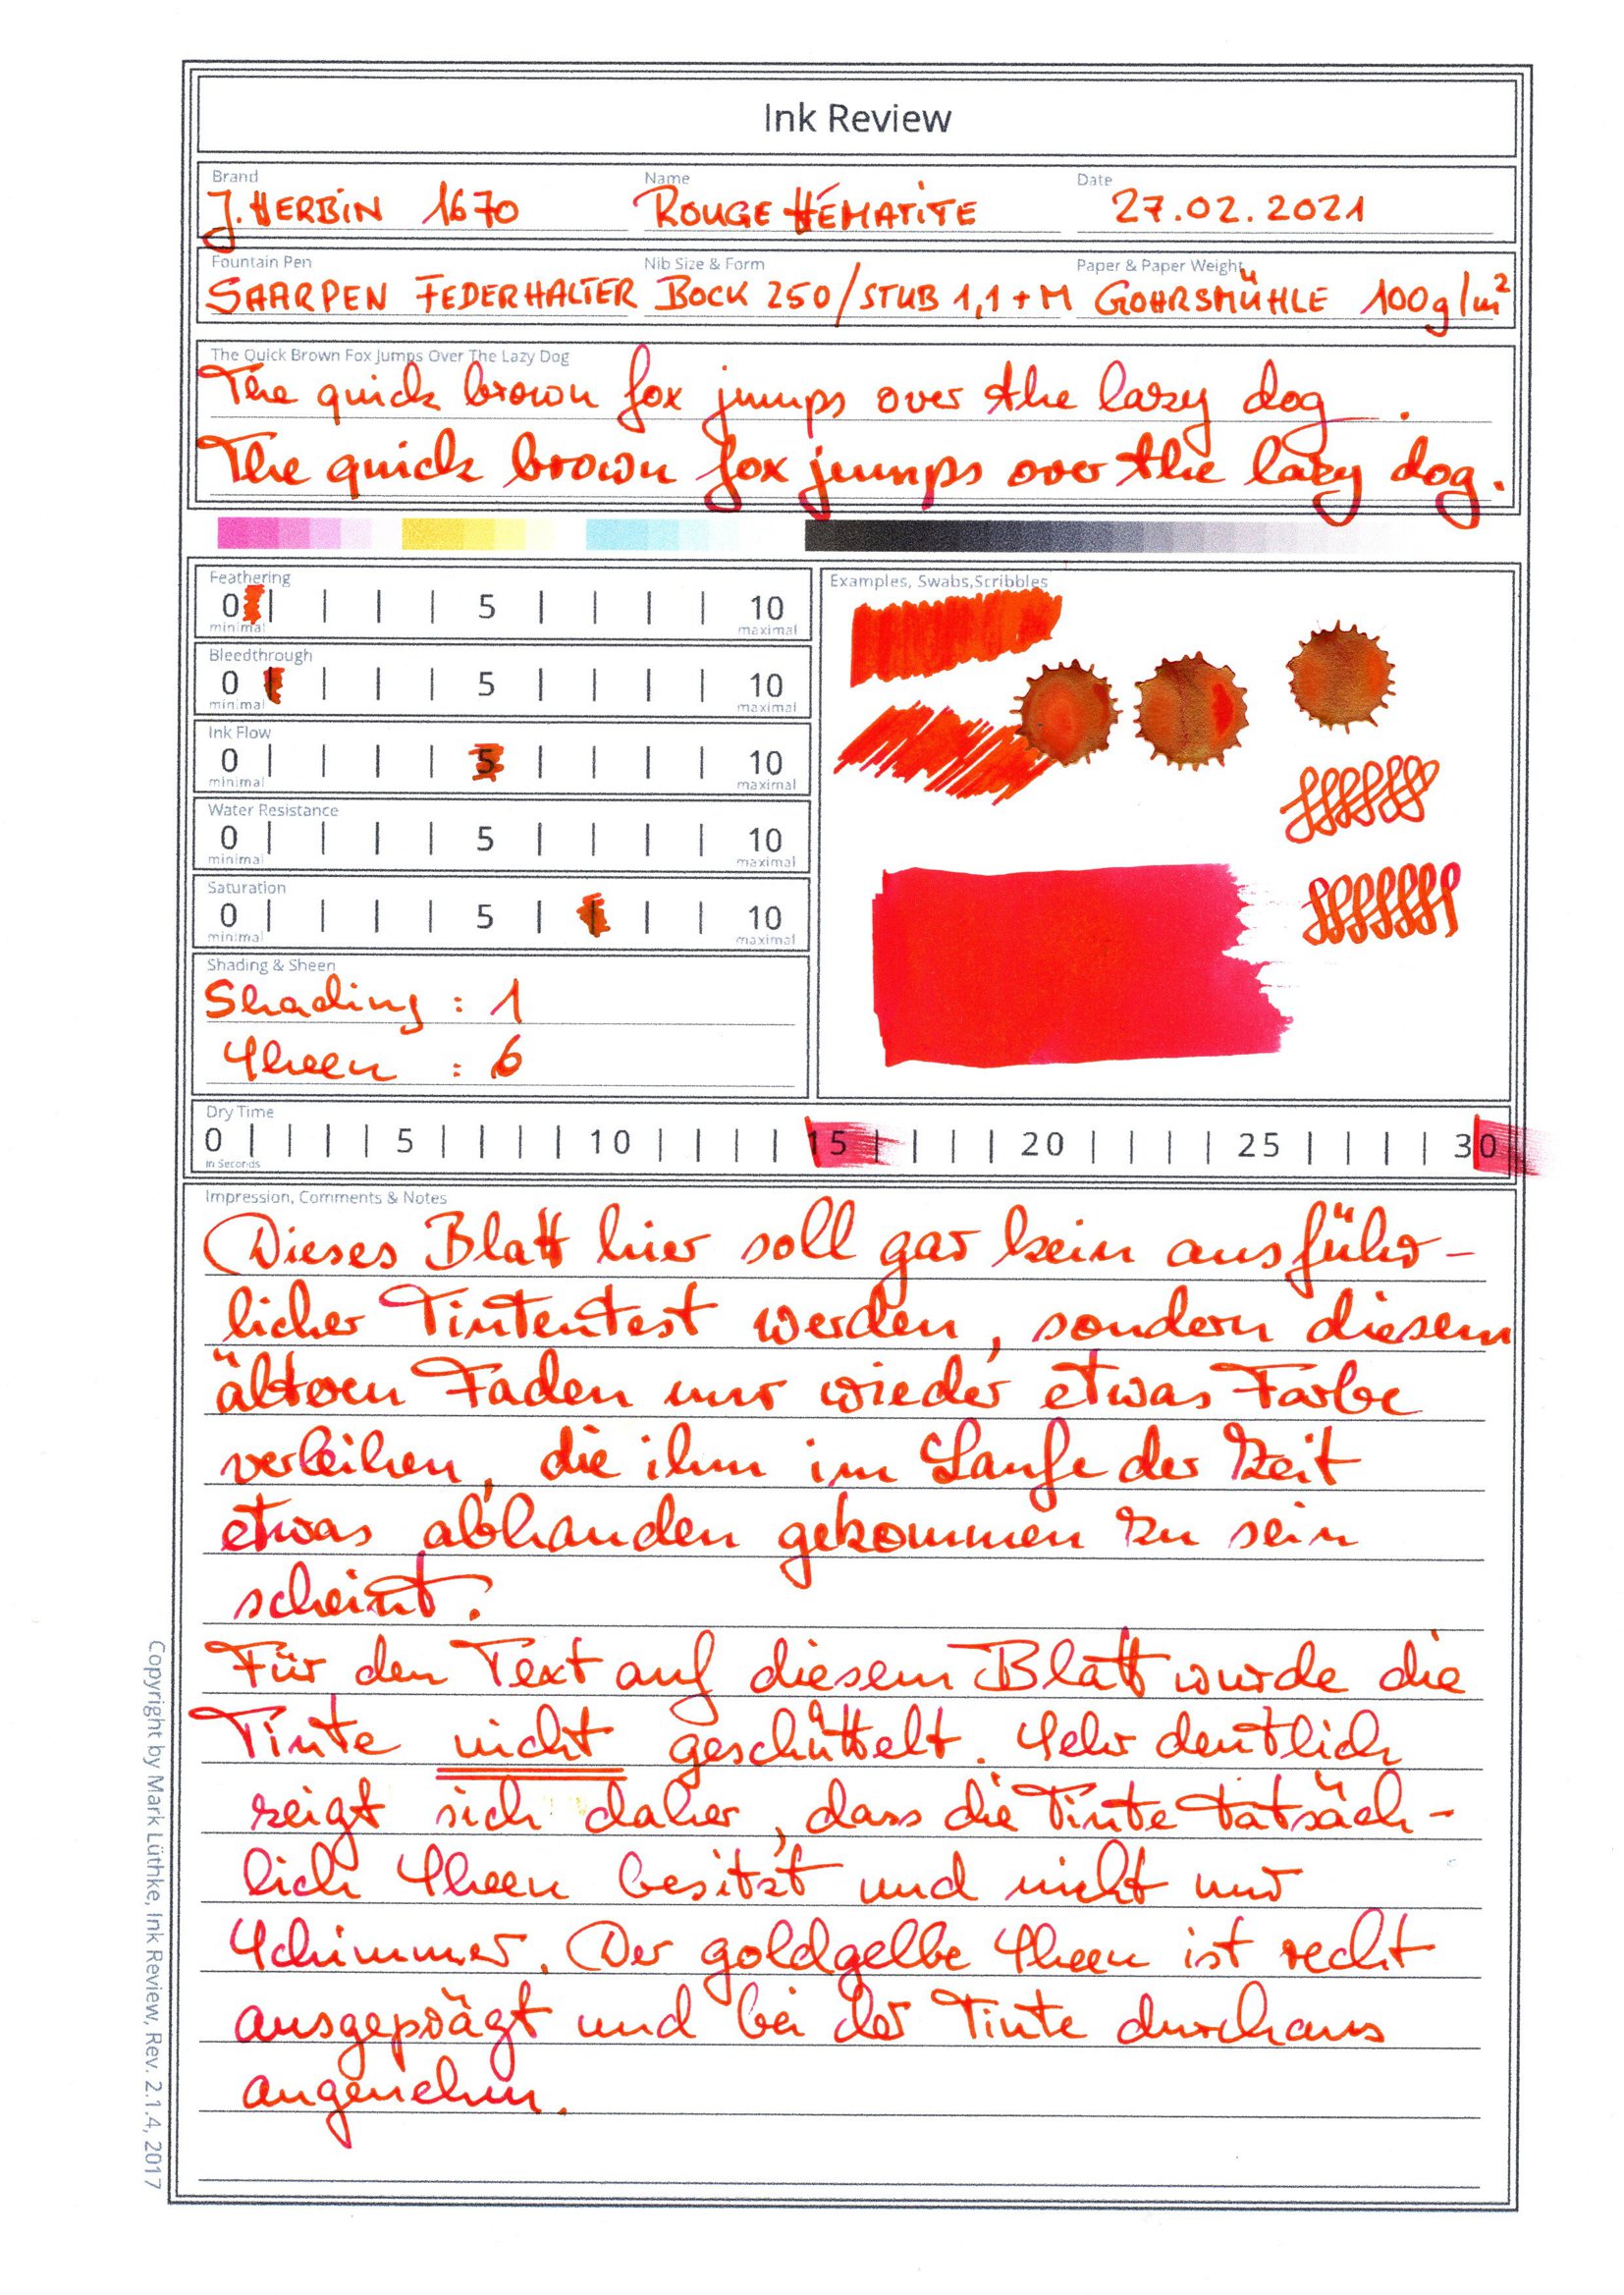 Ink Review
Brand Name Date
J. HERBIN 1670 ROUGE HÉMATITE 27.02.2021
Fountain Pen Nib Size & Form Paper & Paper Weight
SAARPEN FEDERHALTER BOCK 250/STUB 1,1+M GOHRSMÜHLE 100g/m²
The Quick Brown Fox Jumps Over The Lazy Dog
The quick brown fox jumps over the lazy dog.
The quick brown fox jumps over the lazy dog.
Feathering
0 | | | | 5 | | | | 10
minimal maximal
Bleedthrough
0 | | | | 5 | | | | 10
minimal maximal
Ink Flow
0 | | | | 5 | | | | 10
minimal maximal
Water Resistance
0 | | | | 5 | | | | 10
minimal maximal
Saturation
0 | | | | 5 | | | | 10
minimal maximal
Shading & Sheen
Shading : 1
Sheen : 6
Examples, Swabs,Scribbles
Dry Time
0 | | | | 5 | | | | 10 | | | | 15 | | | | 20 | | | | 25 | | | | 30
In Seconds
Impression, Comments & Notes
Dieses Blatt hier soll gar kein ausführ-
licher Tintentest werden, sondern diesem
älteren Faden nur wieder etwas Farbe
verleihen, die ihm im Laufe der Zeit
etwas abhanden gekommen zu sein
scheint.
Für den Text auf diesem Blatt wurde die
Tinte nicht geschüttelt. Sehr deutlich
zeigt sich daher, dass die Tinte tatsäch-
lich Sheen besitzt und nicht nur
Schimmer. Der goldgelbe Sheen ist recht
ausgeprägt und bei der Tinte durchaus
angenehm.
Copyright by Mark Lüthke, Ink Review, Rev. 2.1.4, 2017